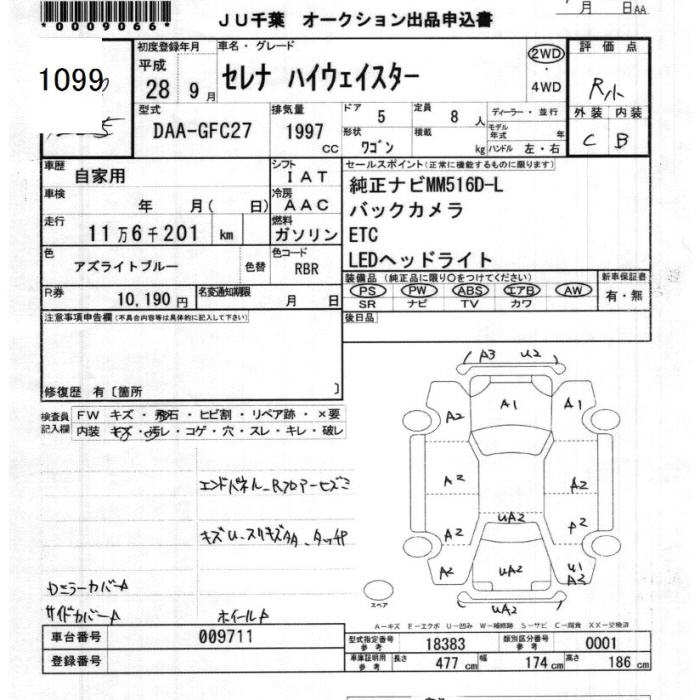 *0009066*
JU千葉 オークション出品申込書
月 日AA
1099
初度登録年月
平成
28 9月
車名・グレード
セレナ ハイウェイスター
2WD
・
4WD
評価点
R小
外装 内装
C B
型式
DAA-GFC27
排気量
1997 cc
ドア 5
定員 8 人
ディーラー・並行
形状 ワゴン
積載 kg
モデル年式 年
ハンドル 左・右
車歴
自家用
シフト
IAT
車検
年 月( 日)
冷房
AAC
走行
11万6千201 km
燃料
ガソリン
色
アズライトブルー
色替
色コード
RBR
R券
10,190円
名変通知期限
月 日
セールスポイント(正常に機能するものに限ります)
純正ナビMM516D-L
バックカメラ
ETC
LEDヘッドライト
装備品(純正品に限り〇をつけてください)
PS PW ABS エアB AW
SR ナビ TV カワ
新車保証書
有・無
後日品
注意事項申告欄(不具合内容等は具体的に記入して下さい)
修復歴 有〔箇所 〕
検査員記入欄
FW キズ・飛石・ヒビ割・リペア跡・×要
内装 キズ・汚レ・コゲ・穴・スレ・キレ・破レ
エンドパネル-R
キズU
サイドカバーA
ホイールA
A3 U2
A2 A1 A1
A2 A2
UA2
A2 P2
A2 UA2 U1
A3
UA2
スペア
A-キズ E-エクボ U-凹み W-補修跡 S-サビ C-腐食 XX-交換済
車台番号 009711
登録番号
型式指定番号 参考 18383
類別区分番号 参考 0001
車庫証明用 参考 長さ 477 cm 幅 174 cm 高さ 186 cm